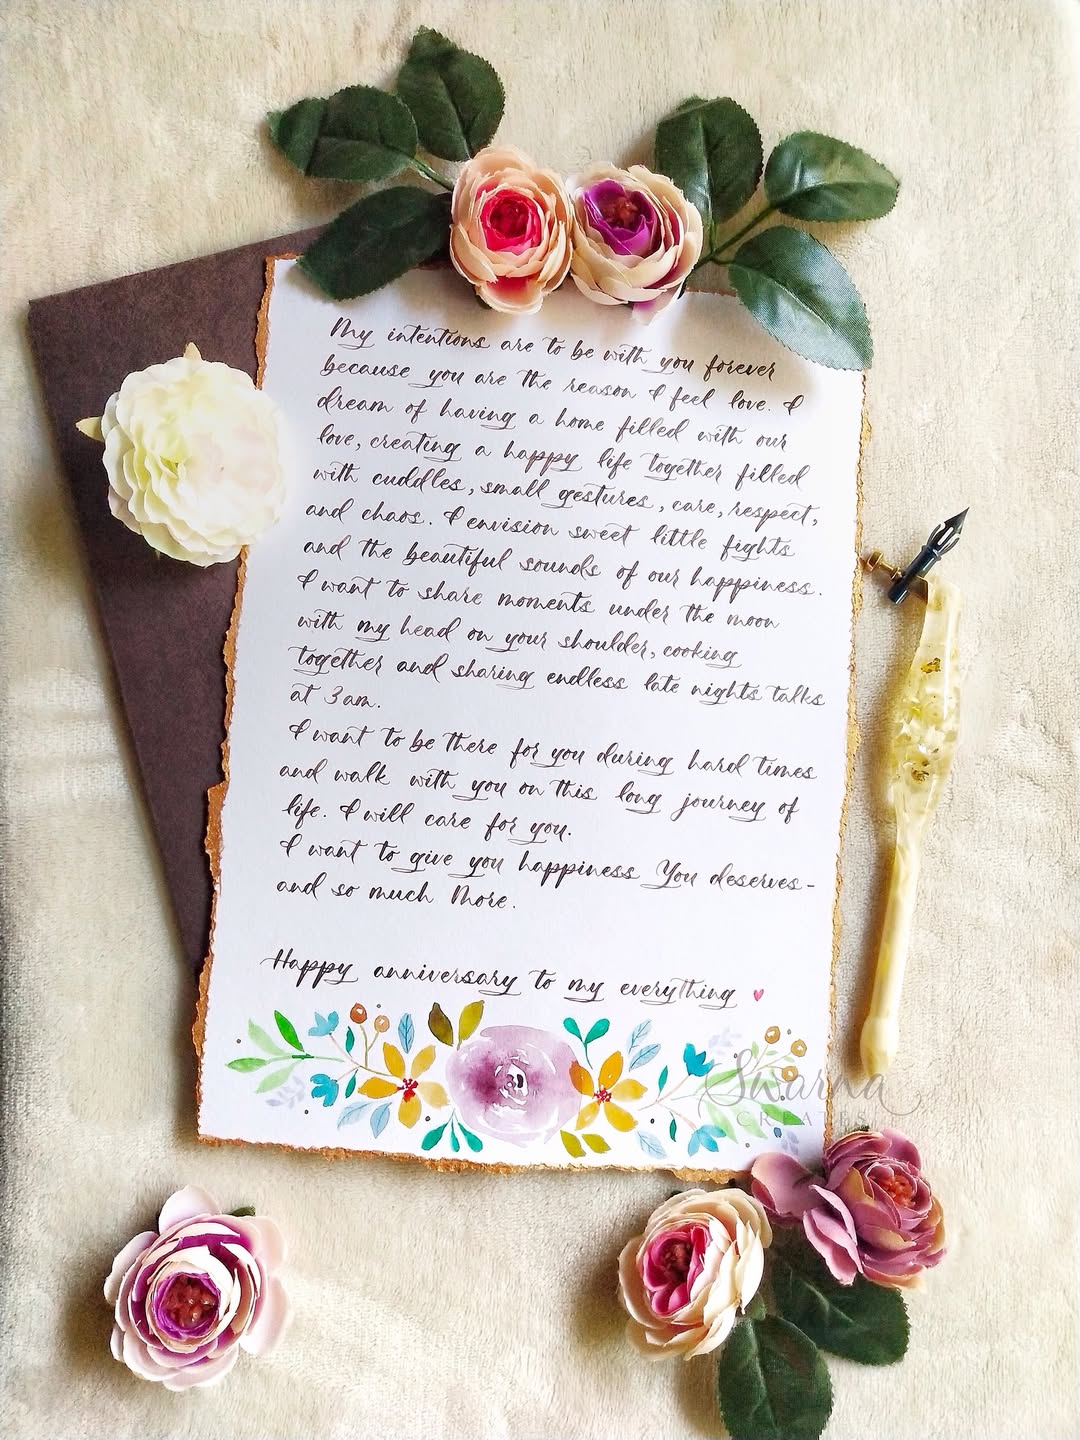 My intentions are to be with you forever
because you are the reason I feel love. I
dream of having a home filled with our
love, creating a happy life together filled
with cuddles, small gestures, care, respect,
and chaos. I envision sweet little fights
and the beautiful sounds of our happiness.
I want to share moments under the moon
with my head on your shoulder, cooking
together and sharing endless late nights talks
at 3am.
I want to be there for you during hard times
and walk with you on this long journey of
life. I will care for you.
I want to give you happiness You deserves-
and so much More.
Happy anniversary to my everything
Swarna